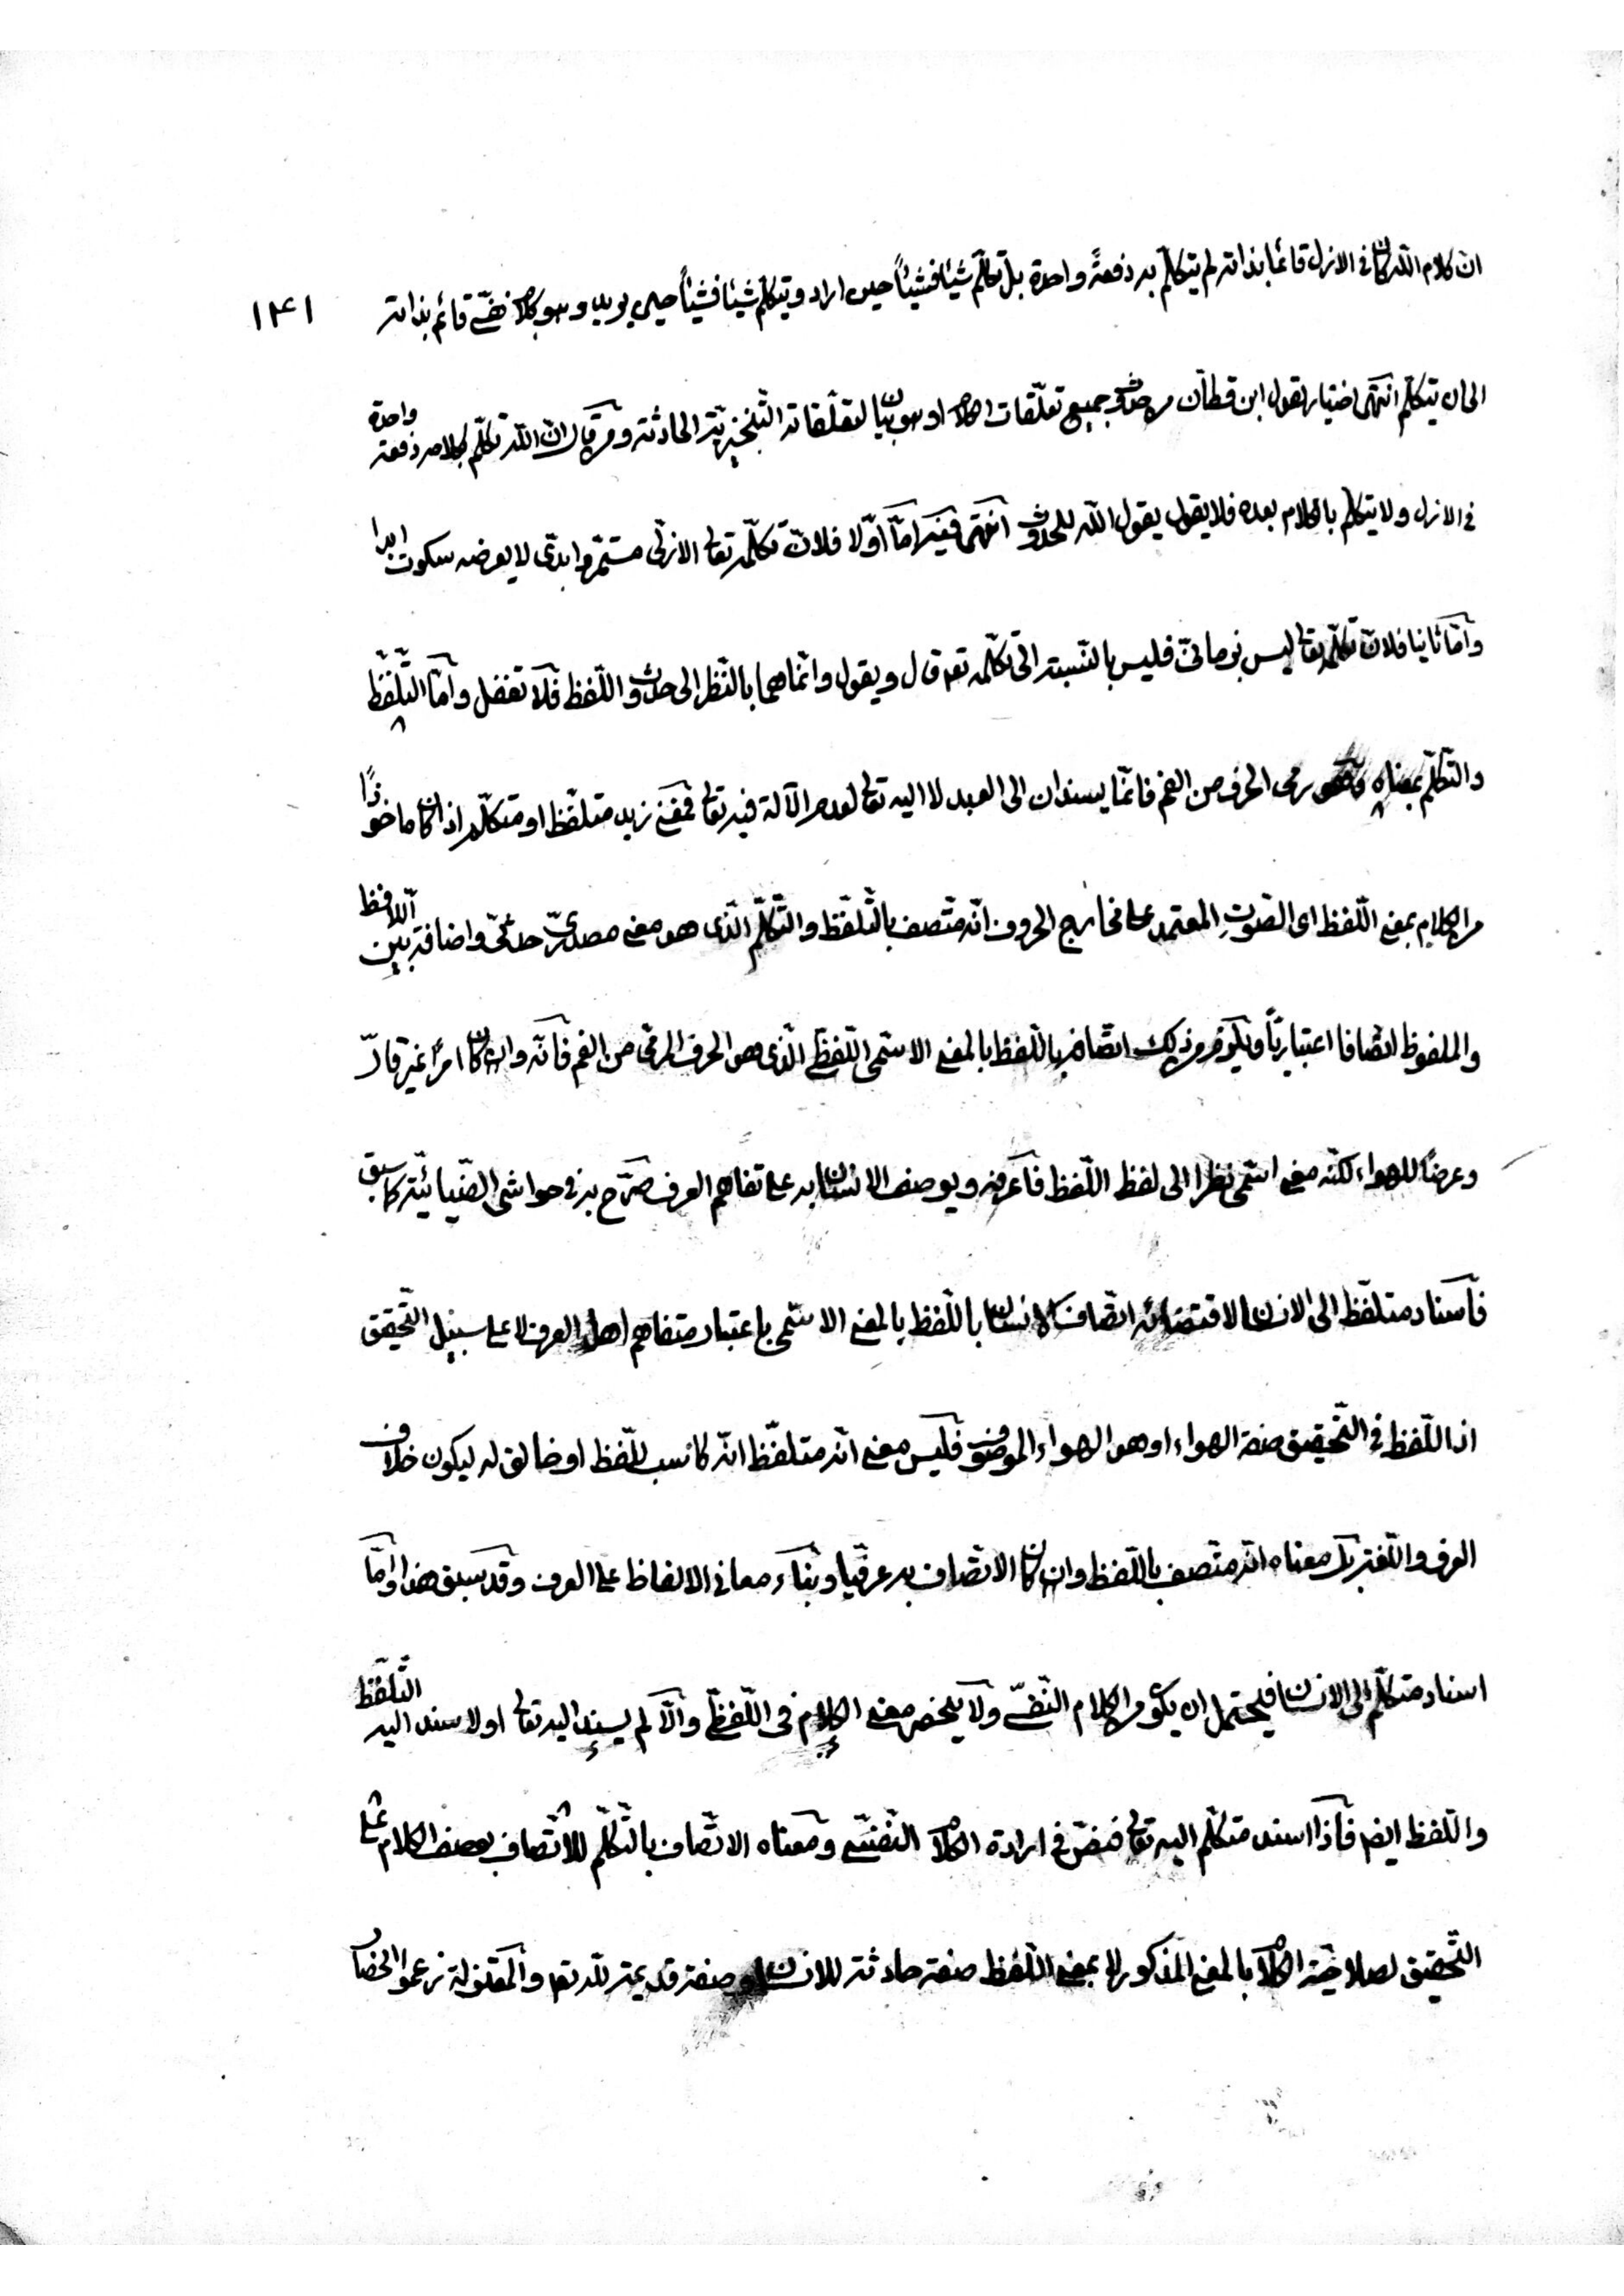 ان كلام الله كان فى الازل قائما بذاته لم يتكلم به دفعةً واحدة بل تكلم شيئا فشيئاً حين اراد و يتكلم شيئا فشيئاً حين يريد و هو كلام نفسىّ قائم بذاته
١٤١
الى ان يتكلم انتهى اختيار لقول ابن قطان من حدوث جميع تعلّقات الكلام او هو بيان لتعلّقاته التنجيزيّة الحادثة و من قال ان الله تكلّم بكلامه دفعة واحدة
فى الازل و لا يتكلم بالكلام بعده فلا يقول يقول الله للحدوث انتهى ففيه امّا اوّلا فلانّ تكلّمه تعالى الازلى مستمرّ ابدىّ لا يعرضه سكوت ابدا
و امّا ثانيا فلانّ تكلّمه تعالى ليس بزمانىّ فليس بالنسبة الى تكلّمه تعم قال و يقول و انّما هما بالنّظر الى حدوث اللّفظ فلا تغفل و امّا التّلفّظ
و التّكلّم بمعناه و هو رمى الحرف من الفم فانّما يسندان الى العبد لا اليه تعالى لعدم الآلة فيه تعالى فمعنى زيد متلفّظ او متكلّم اذا كان ماخوذًا
من الكلام بمعنى اللّفظ اى الصّوت المعتمد على مخارج الحروف انّه متّصف بالتّلفّظ و التّكلّم الّذى هو معنى مصدرىّ حدثىّ و اضافة بين اللّافظ
و الملفوظ اتّصافا اعتباريّاً و يكون ذلك اتّصافه باللّفظ بالمعنى الاسمى اللّفظ الّذى هو الحرف المرمىّ من الفم فانّه و ان كان امرًا غير قارّ
و عرضاً للهواء لكنّه معنى اسمى نظرا الى لفظ اللّفظ فاعرفه و يوصف الانسان به على تفاهم العرف صرّح به فى حواشى الضّيائيّة كما سبق
فاسناد متلفّظ الى الانسان لاقتضائه اتّصاف الانسان باللّفظ بالمعنى الاسمى باعتبار متفاهم اهل العرف لا على سبيل التّحقيق
اذ اللّفظ فى التّحقيق صفة الهواء او هو الهواء الموصوف فليس معنى انّه متلفّظ انّه كاسب للّفظ او خالق له ليكون خلاف
العرف و اللّغة بل معناه انّه متّصف باللّفظ و ان كان الاتّصاف به عرفيّا و بناء معانى الالفاظ على العرف و قد سبق هذا و امّا
اسناد متكلّم الى الانسان فيحتمل ان يكون من الكلام النّفسىّ و لا ينحصر معنى الكلام فى اللّفظىّ و الّا لم يسند اليه تعالى او لاسند اليه التّلفّظ
و اللّفظ ايضم فاذا اسند متكلّم اليه تعالى فنصّ فى ارادة الكلام النّفسىّ و معناه الاتّصاف بالتّكلّم للاتّصاف بوصف الكلام على
التّحقيق لصلاحيّة الكلام بالمعنى المذكور لا بمعنى اللّفظ صفة حادثة للانسان و صفة قديمة لله تعم و المعتزلة زعموا انحصار